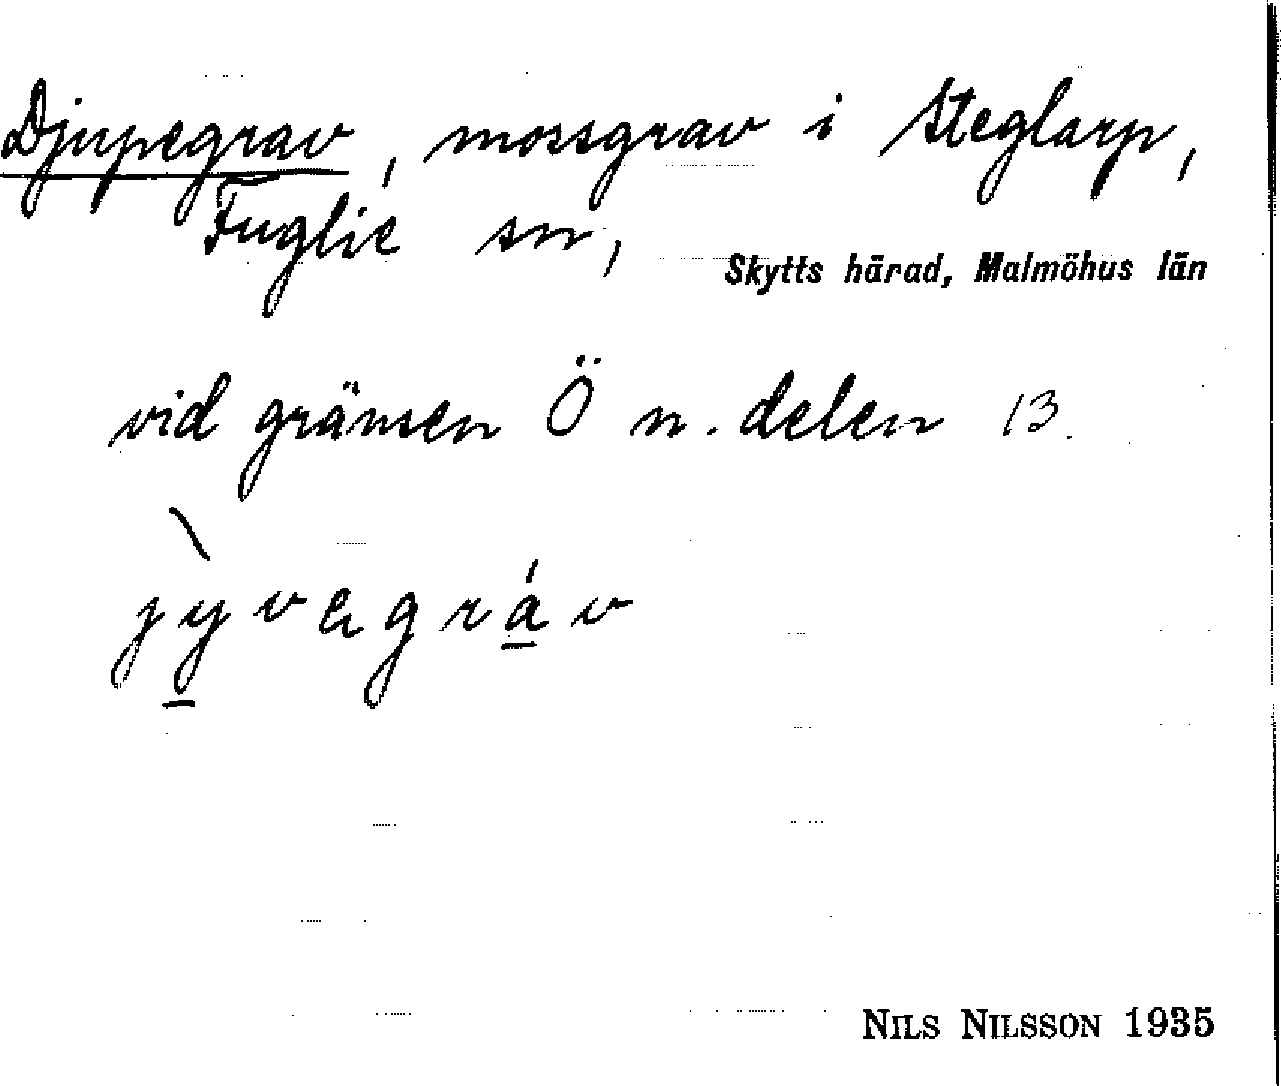 Djupegrav, mossgrav i Steglarp,
Fuglie sn, Skytts härad, Malmöhus län
vid gränsen Ö n. delen 13.
jỳ̱vəgrá̱v
NILS NILSSON 1935